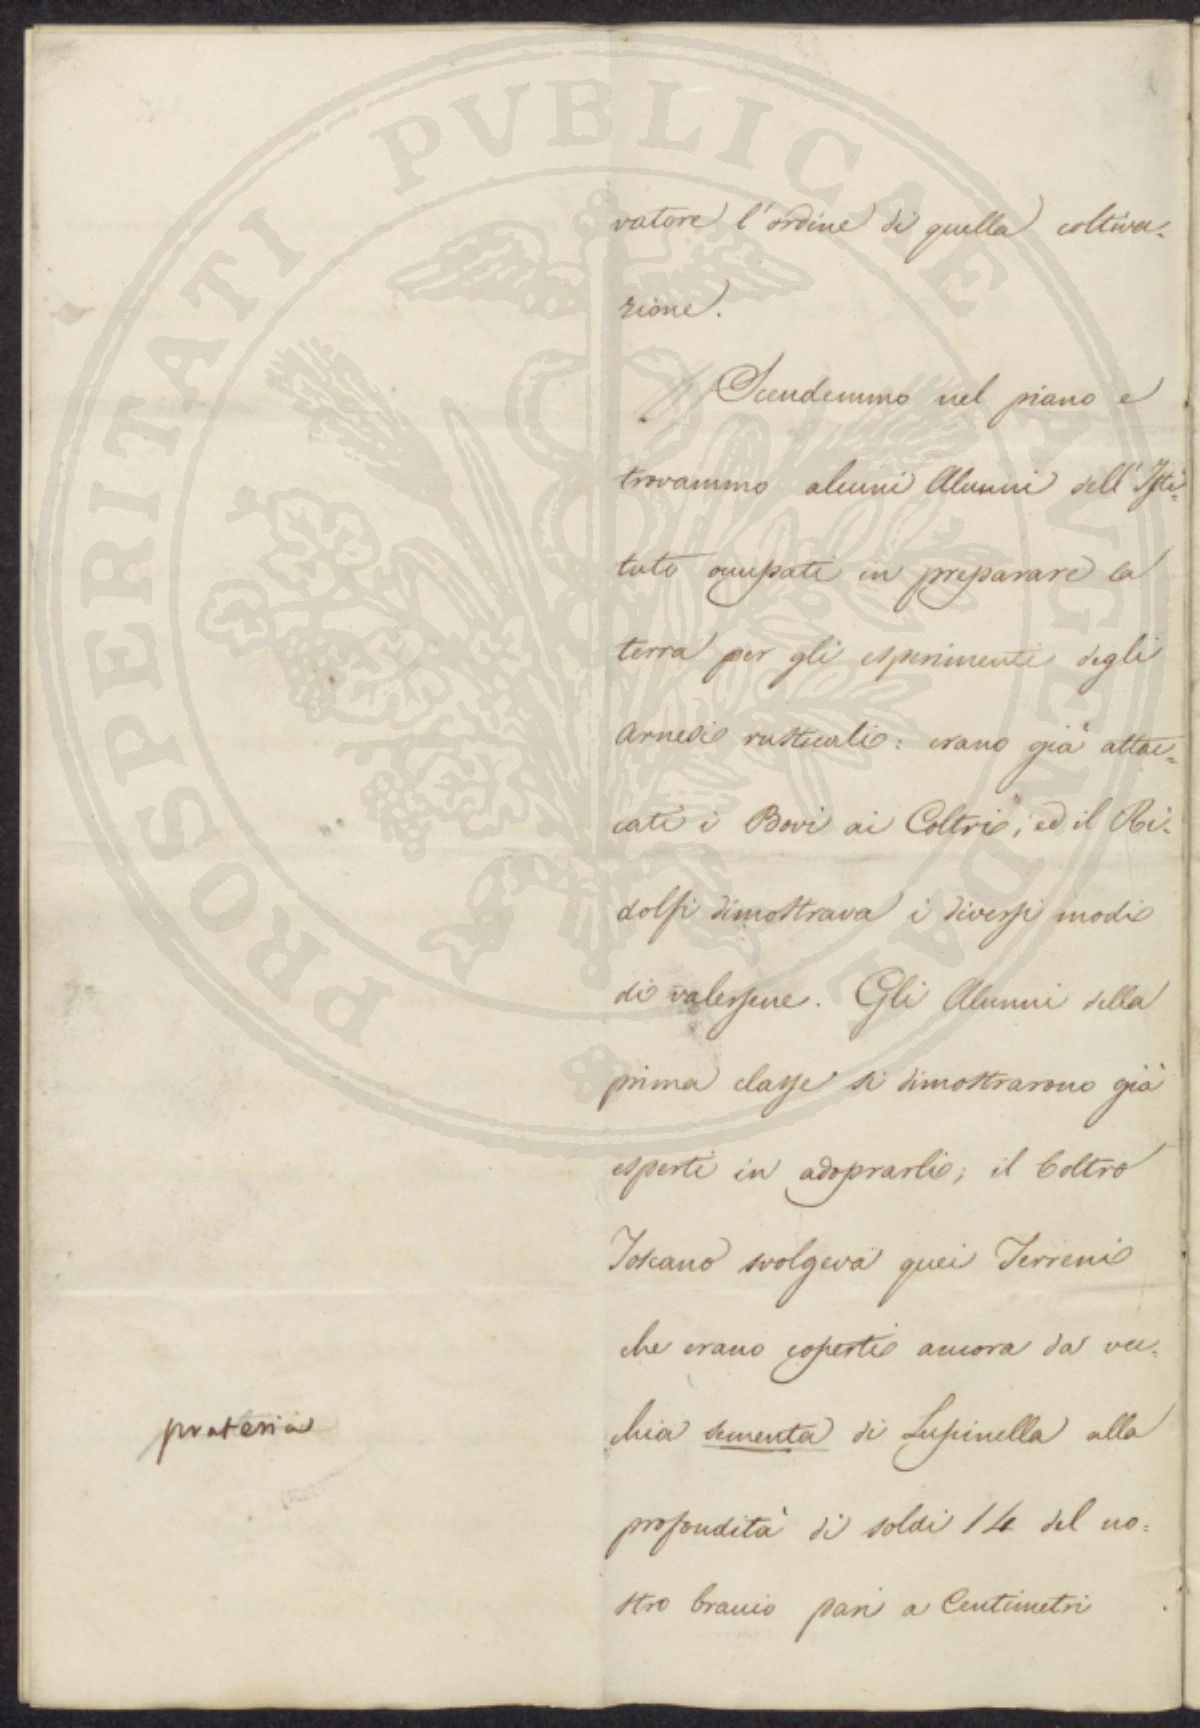 PROSPERITATI PVBLICAE AVGENDAE
vatore l'ordine di quella coltiva=
zione.
Scendemmo nel piano e
trovammo alcuni Alunni dell'Isti=
tuto occupati in preparare la
terra per gli esperimenti degli
Arnesi rusticali: erano già attac=
cati i Bovi ai Coltri, ed il Ri=
dolfi dimostrava i diversi modi
di valersene. Gli Alunni della
prima classe si dimostrarono già
esperti in adoprarli; il Coltro
Toscano svolgeva quei Terreni
che erano coperti ancora da vec=
chia sementa di Lupinella alla
prateria
profondità di soldi 14 del no=
stro braccio pari a Centimetri